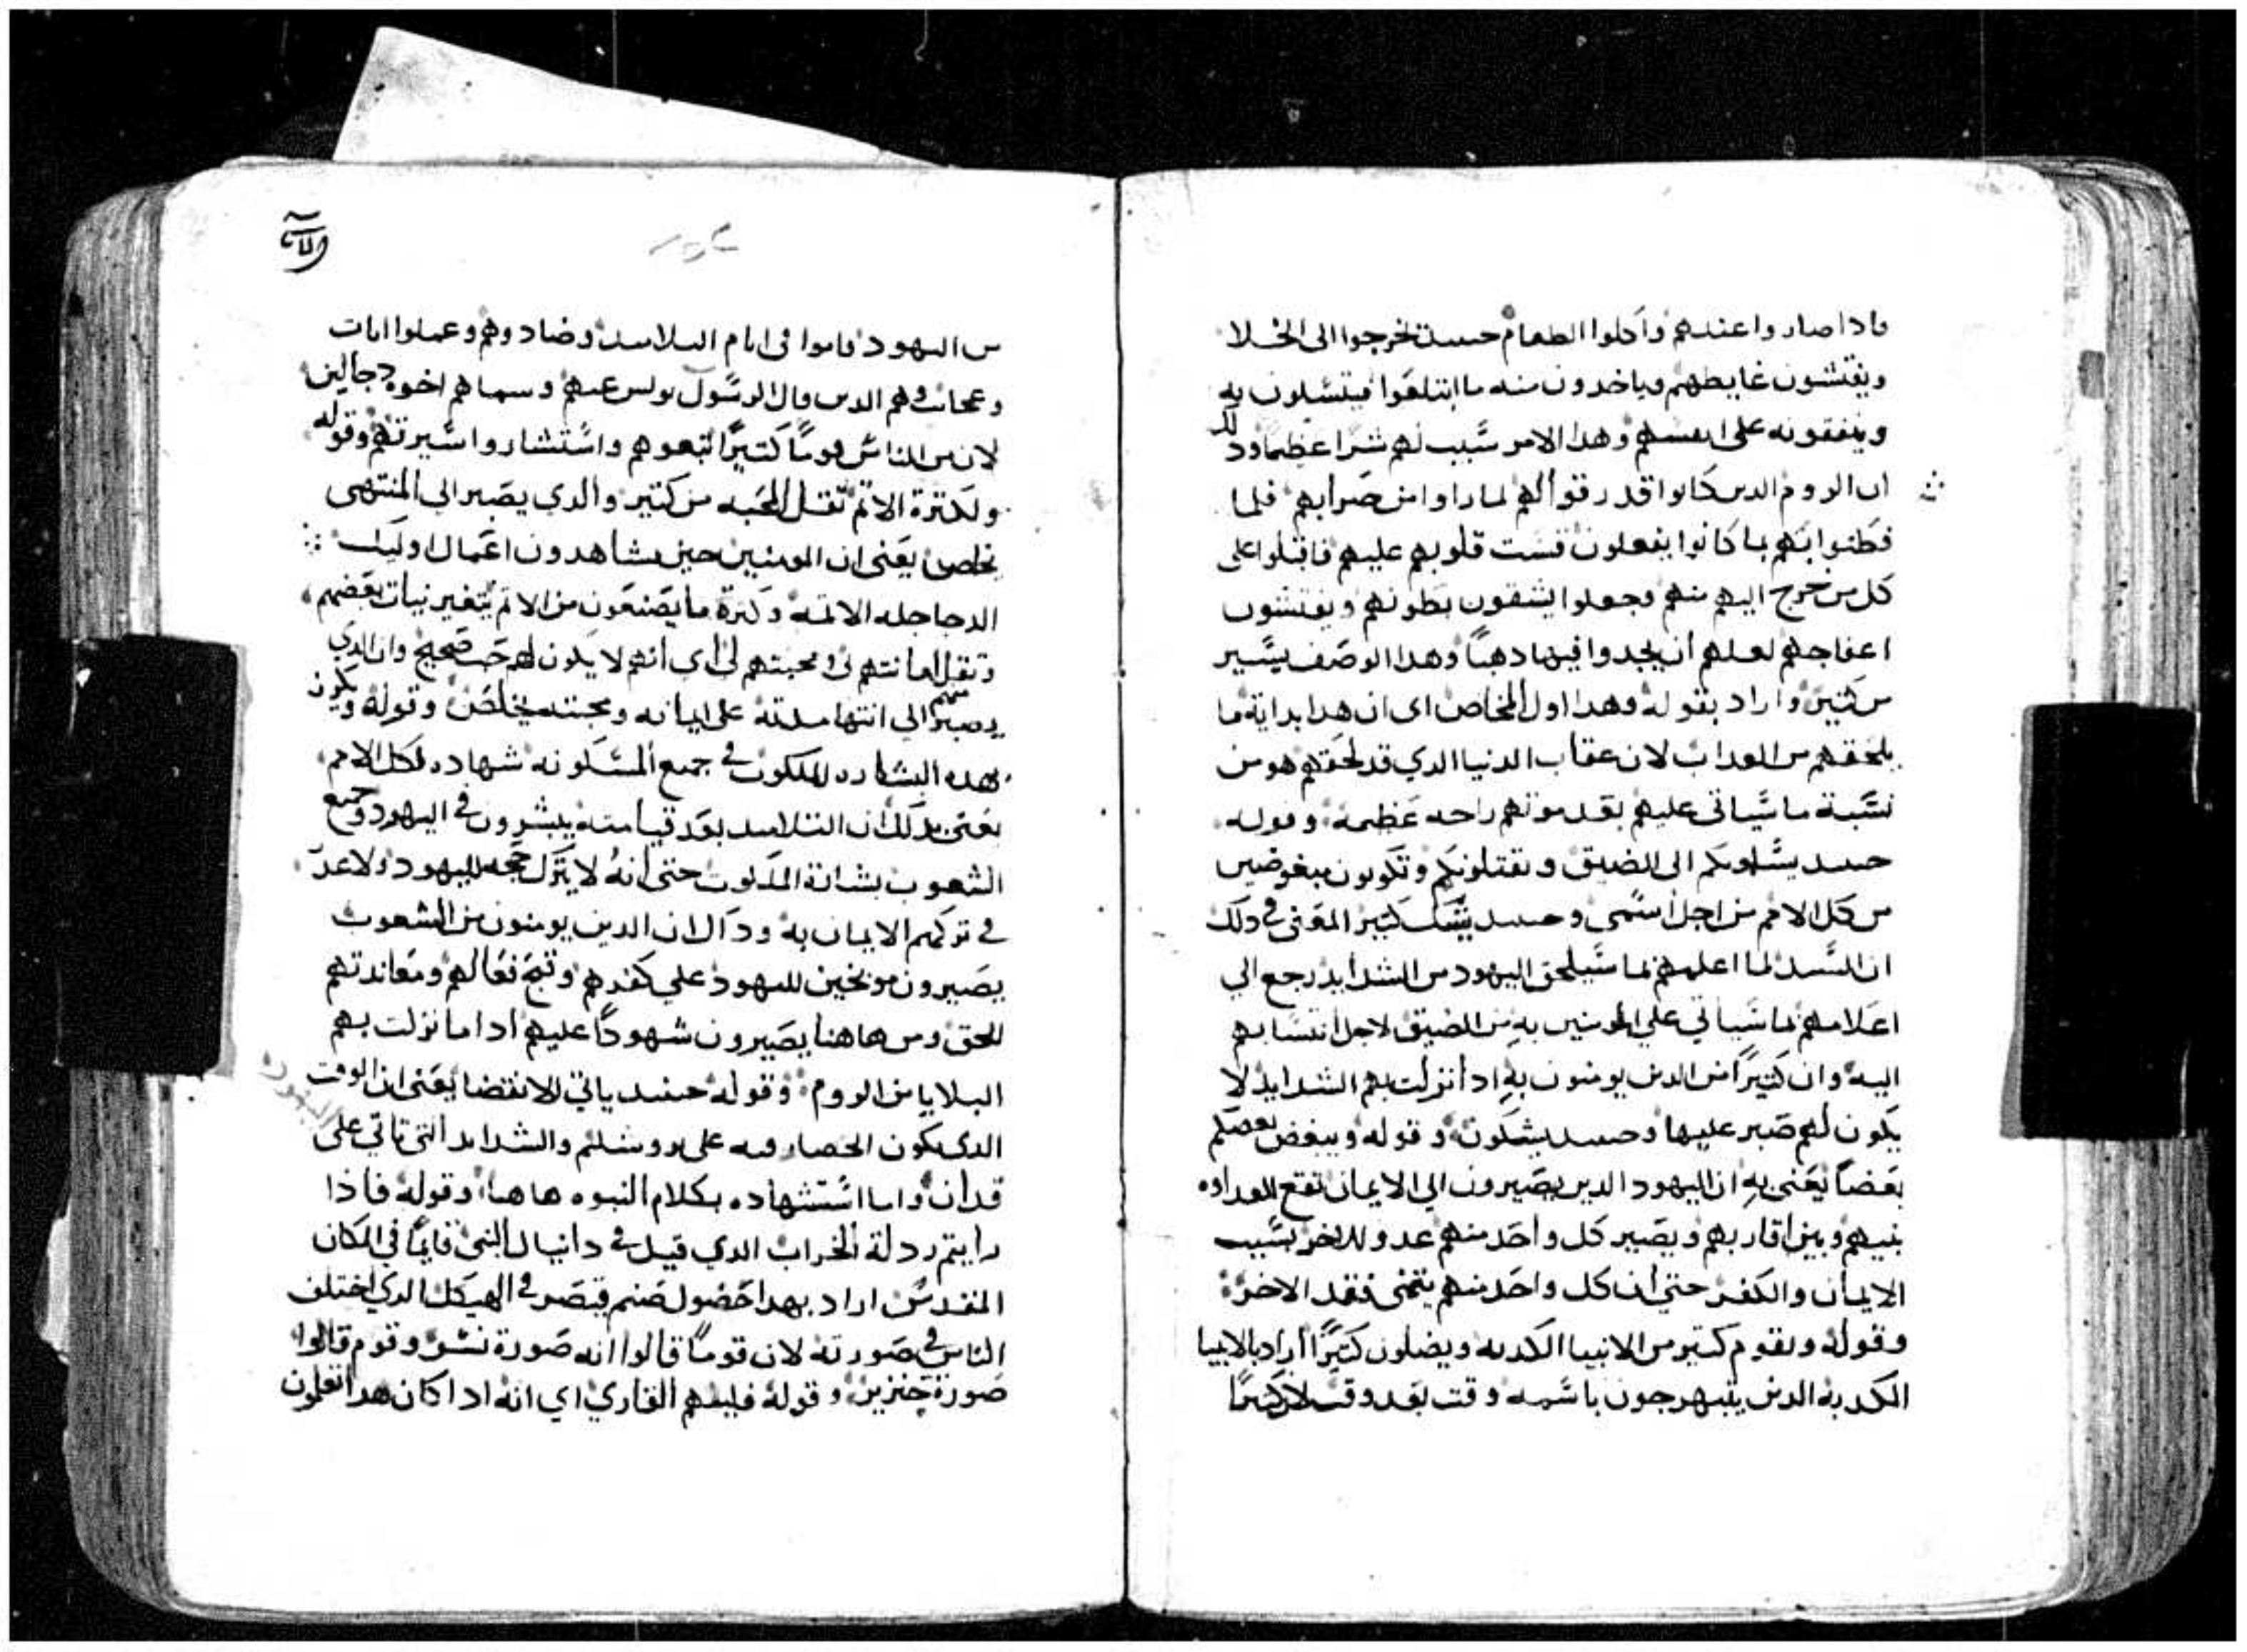 فاذا صاروا عندهم واكلوا الطعام حينيذ يخرجوا الى الخلا
ويفتشون غايطهم وياخدون منه ما ابتلعوا فيتسلون به
وينفقونه على انفسهم وهدا الامر سبب لهم شرا عظيما ودلك
ان الروم الدين كانوا قد رقوا لهم لما راوا من ضرابهم فلما
فطنوا بهم بما كانوا يفعلون قست قلوبهم عليهم فاقبلوا على
كل من خرج اليهم منهم وجعلوا يشقون بطونهم ويفتشون
اعفاجهم لعلهم ان يجدوا فيها دهبا وهدا الوصف يسير
من كثير واراد بقوله وهدا اول المخاض اى ان هدا بداية ما
يلحقهم من العداب لان عقاب الدنيا الدي قد لحقهم هو من
نسبة ما سياتى عليهم بعد موتهم راحه عظيمة وقوله
حينيد يسلمونكم الى الضيق ويقتلونكم وتكونون مبغوضين
من كل الامم من اجل اسمى وحينيد يشك كثير المعنى في دلك
ان السيد لما اعلمهم بما سيلحق اليهود من الشدايد رجع الي
اعلامهم بما سياتي علي المومنين به من الضيق لاجل انتسابهم
اليه وان كثيرا من الدين يومنون به ادا نزلت بهم الشدايد لا
يكون لهم صبر عليها وحينيد يشكون وقوله ويبغض بعضكم
بعضا يعنى به ان اليهود الدين يصيرون الي الايمان تقع العداوه
بينهم وبين اقاربهم ويصير كل واحد منهم عدو للاخر بسبب
الايمان والكفر حتي ان كل واحد منهم يتمنى فقد الاخر
وقوله ويقوم كثير من الانبيا الكدبه ويضلون كثيرا اراد بالانبيا
الكدبه الدين يتبهرجون باسمه وقت بعد وقت لان كثيرا
من اليهود قاموا فى ايام التلاميد وضادوهم وعملوا ايات
وعجايب وهم الدين قال الرسول بولس عنهم وسماهم اخوه دجالين
لان من الناس قوما كثيرا اتبعوهم واستشاروا سيرتهم وقوله
ولكثرة الاثم تقل المحبه من كثير والدي يصبر الى المنتهى
يخلص يعنى ان المومنين حين يشاهدون اعمال اوليك
الدجاجله الاثمه وكثرة ما يصنعون من الاثم يتغير نيات بعضهم
وتقل امانتهم بى ومحبتهم لى اى انهم لا يكون لهم حب صحيح وان الدي
يصبر منهم الى انتها مدته على ايمانه ومحبته يخلص وقوله ويكرز
بهده البشاره للملكوت في جميع المسكونه شهاده لكل الامم
يعنى بدلك ان التلاميد بعد قيامته يبشرون في اليهود وجميع
الشعوب بشارة الملكوت حتى انه لا يترك حجه لليهود ولا عدر
في تركهم الايمان به وداك ان الدين يومنون من الشعوب
يصيرون موبخين لليهود على كفرهم وقبح فعالهم ومعاندتهم
للحق ومن هاهنا يصيرون شهودا عليهم ادا ما نزلت بهم
البلايا من الروم وقوله حينيد ياتي الانقضا يعنى ان الوقت
الدى يكون الحصار فيه على يروشليم والشدايد التى تاتي على
قد ان واما استشهاده بكلام النبوه هاهنا وقوله فاذا
رايتم ردلة الخراب الدي قيل في دانيال النبى قايما في المكان
المقدس اراد بهدا حصول صنم قيصر في الهيكل الدي اختلف
الناس في صورته لان قوما قالوا انه صورة نسر وقوم قالوا
صورة خنزير وقوله فليفهم القاري اي انه ادا كان هدا تعلمون